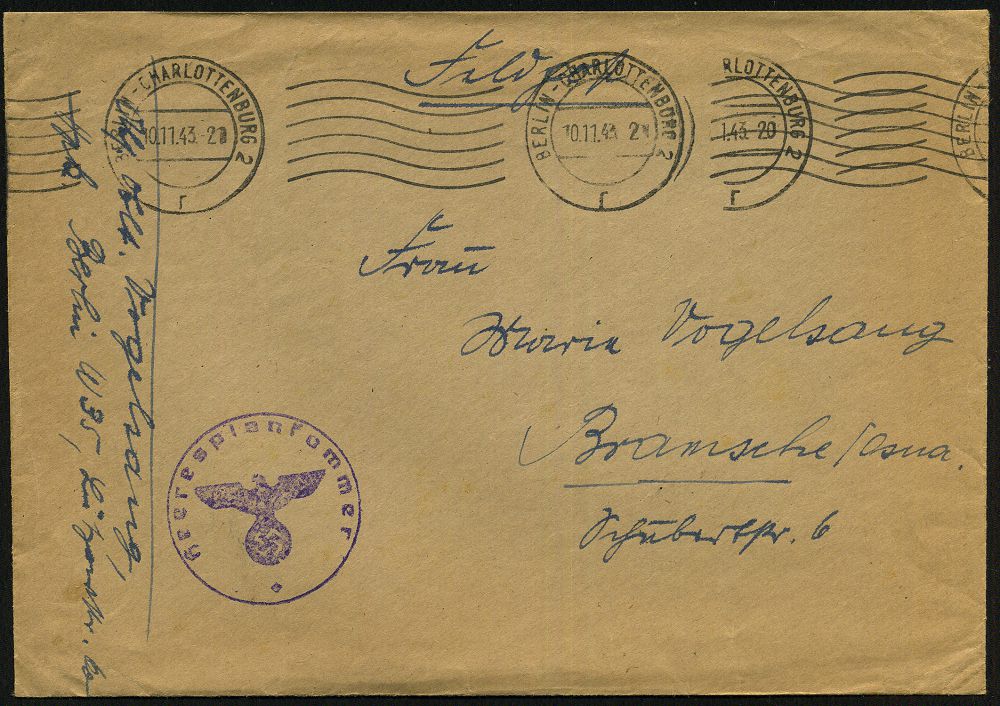 Feldpost
BERLIN-CHARLOTTENBURG 2
10.11.43. 20
r
BERLIN-CHARLOTTENBURG 2
10.11.43 20
r
RLOTTENBURG 2
1.43. 20
r
BERLIN-
Frau
Maria Vogelsang
Bramsche/Osna.
Schubertstr. 6
Heeresplankammer
Vogelsang,
Berlin W35, Lützowstr.